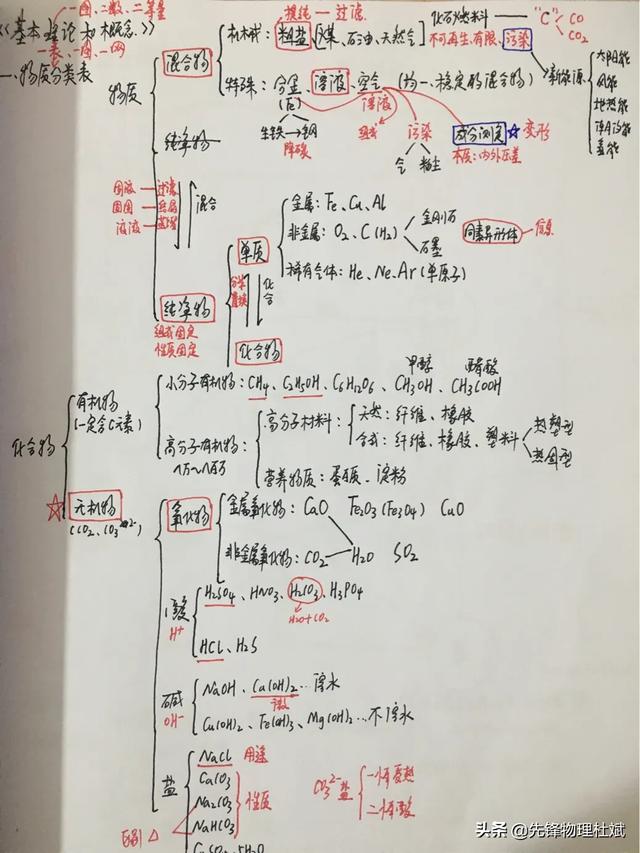 一图、二数、二等量
《基本理论和概念》
一表、一图、一网
一、物质分类表
物质
混合物
机械: 粗盐、煤、石油、天然气
提纯—过滤
化石燃料
不可再生、有限、污染
"C"
CO
CO2
新能源
太阳能
风能
地热能
潮汐能
特殊: 合金、溶液、空气 (均一、稳定的混合物)
(固)
溶液
生铁→钢
降碳
组成
污染
气
粉尘
成分测定☆变形
本质: 内外压差
纯净物
固液 过滤
固固 结晶
液液 蒸馏
混合
纯净物
组成固定
性质固定
单质
金属: Fe、Cu、Al
非金属: O2、C(H2)
金刚石
石墨
同素异形体
信息
稀有气体: He、Ne、Ar(单原子)
分解
置换
化合
化合物
化合物
有机物
(一定含C元素)
小分子有机物: CH4、C2H5OH、C6H12O6、CH3OH、CH3COOH
甲醇 醋酸
高分子有机物:
几万~几百万
高分子材料:
天然: 纤维、橡胶
合成: 纤维、橡胶、塑料
热塑型
热固型
营养物质: 蛋白质、淀粉
☆无机物
(CO2、CO3 2-)
氧化物
金属氧化物: CaO Fe2O3(Fe3O4) CuO
非金属氧化物: CO2 H2O SO2
酸
H+
H2SO4、HNO3、H2CO3、H3PO4
H2O+CO2
HCl、H2S
碱
OH-
NaOH、Ca(OH)2…溶水
微
Cu(OH)2、Fe(OH)3、Mg(OH)2…不溶水
盐
NaCl 用途
CaCO3
Na2CO3
NaHCO3
性质
区别 △
CO3 2-盐
一怕受热
二怕酸
CuSO4·5H2O
头条 @先锋物理杜斌